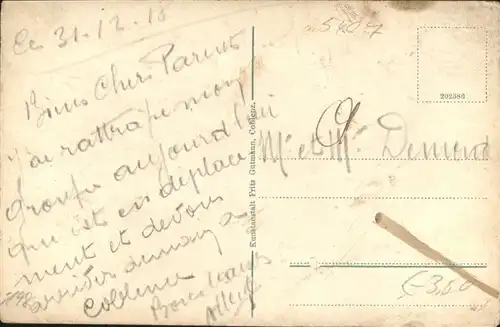 Le 31.12.18
Biens Chers Parents
J'ai rattrapé mon
groupe aujourd'hui
qui est en déplace
ment et devons
arriver demain a
Coblence
Bons baisers
Kunstanstalt Fritz Gutmann, Coblenz.
202586
Mr et Me
€3,60